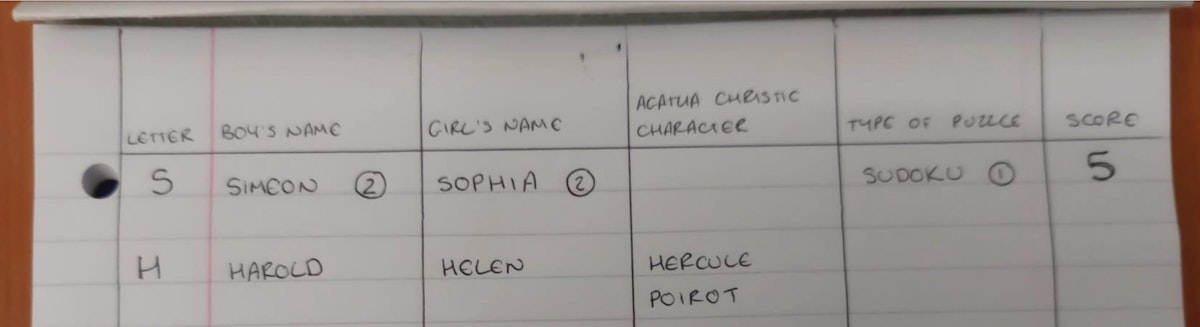 LETTER
BOY'S NAME
GIRL'S NAME
AGATHA CHRISTIE
CHARACTER
TYPE OF PUZZLE
SCORE
S SIMEON ② SOPHIA ② SUDOKU ① 5
H HAROLD HELEN HERCULE
POIROT